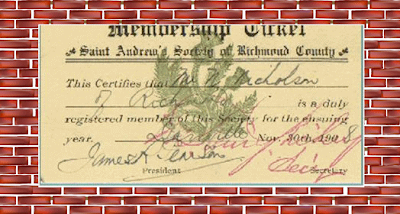 Membership Ticket
Saint Andrew's Society of Richmond County
This Certifies that Mr D. Nicholson
of is a duly
registered member of this Society for the ensuing
year. Nov. 30th, 190 8
James A.
President Secretary